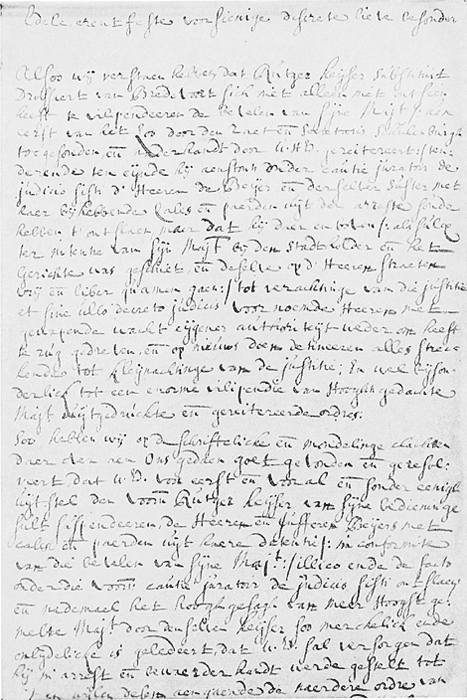 Edele erentfeste voorsienige discrete lieve besonder
Alsoo wij verstaen hebben, dat Rutger Keijser substituit
Drossaert van Bredevoort sich niet alleen niet ontsien
heeft te vilipenderen de bevelen van sijne Majt
eerst van het door den Raet en Secretaris
toegesonden, en naderhandt door U.Ed. gereitereert: sten-
derende ten eijnde hij aenstonts onder cautie jurator de
judicio sisti d'Heeren de Beijer en derselver suster met
haer bijhebbende Cales en peerden uijt den arreste soude
hebben t'ontslaen maer dat hij daer en boven:
ter intentie van Sijn Majt bij den Stadtholder en het
Gerichte was geschiet, en deselve op d'Heeren straeten
vrij en liber quamen gaen:/ tot verachtinge van die justitie
et sine ullo decreto judicis voornoemde Heeren met
gewapende wacht eijgener authoriteijt wederom heeft
te rug gedreven, en op nieuws doen detineeren alles strec-
kende tot kleijnachtinge van de justitie; En wel bijson-
derlick tot een enorme vilipendie van Hooghstgedachte
Majt uijtgedruckte en gereitereerde ordres.
Soo hebben wij op de schriftelicke en mondelinge clachten
daer over aen Ons gedaen goet gevonden en geresol-
veert dat U.Ed. voor eerst en vooral en sonder eenigh
uijtstel den voorn Rutger Keijser van sijne bedieninge
sult suspendeeren, de Heeren en Juffern Beijers met
cales en peerden uijt haere detentie: in conformite
van die bevelen van sijne Majt:/ illico ende de facto
onder die voorn cautie jurator de judicio sisti ontslaen
en nademael het Hoogh gesagh van meer Hooghstge-
melte Majt door denselven Keijser soo merckelick ende
onlijdelick is geledeert, dat U.Ed. sal versorgen dat
hij in arrest en bewaerder handt werde gestelt tot
wijlen desen aengaende de naerdere ordre van